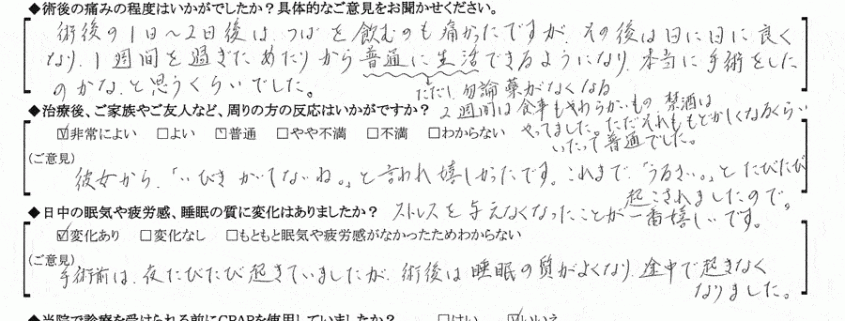 ◆術後の痛みの程度はいかがでしたか？具体的なご意見をお聞かせください。
術後の1日〜2日後は、つばを飲むのも痛かったですが、その後は日に日に良く
なり、1週間を過ぎたあたりから普通に生活できるようになり、本当に手術をした
のかな、と思うくらいでした。
ただし、勿論薬がなくなる
2週間は食事もやわらかいもの、禁酒は
やってました。ただそれももどかしくなるくらい
いたって普通でした。
◆治療後、ご家族やご友人など、周りの方の反応はいかがですか？
☑非常によい □よい □普通 □やや不満 □不満 □わからない
(ご意見)
彼女から、「いびきかいてないね。」と言われ嬉しかったです。これまで「うるさい。」とたびたび
起こされましたので。
ストレスを与えなくなったことが一番嬉しいです。
◆日中の眠気や疲労感、睡眠の質に変化はありましたか？
☑変化あり □変化なし □もともと眠気や疲労感がなかったためわからない
(ご意見)
手術前は、夜たびたび起きていましたが、術後は睡眠の質がよくなり、途中で起きなく
なりました。
◆当院で診療を受けられる前にCPAPを使用していましたか？ □はい ☑いいえ